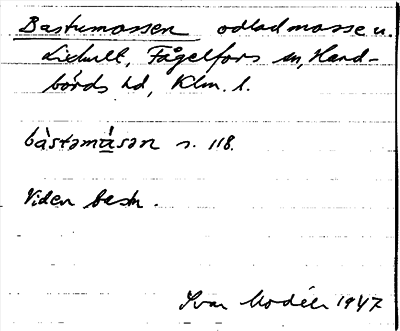 Bastumossen odlad mosse u.
Lidhult, Fågelfors sn, Hand-
börds hd, Klm. l.
bàstəmåsən s. 118.
Viden besn.
Ivar Modéer 1947